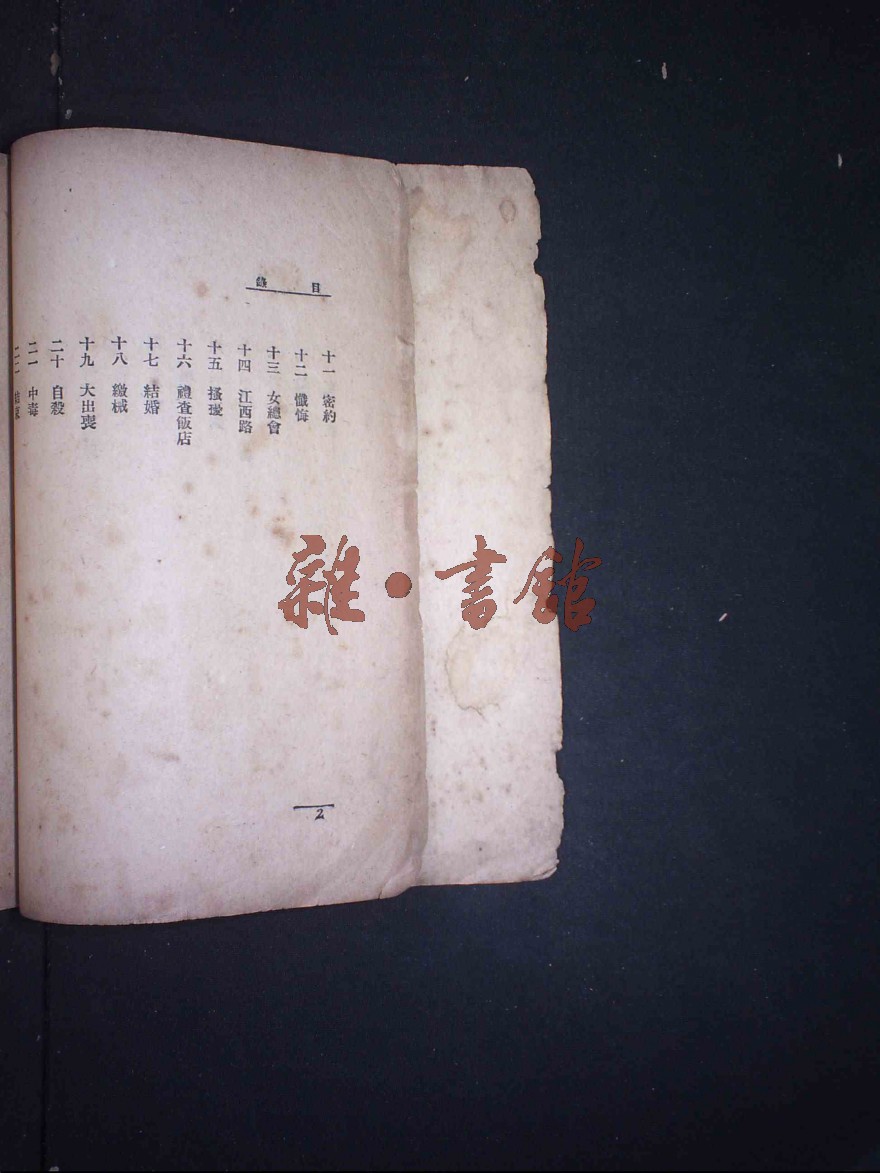 目錄
十一 密約
十二 懺悔
十三 女總會
十四 江西路
十五 搔擾
十六 禮查飯店
十七 結婚
十八 繳械
十九 大出喪
二十 自殺
二一 中毒
二二
2
雜·書館